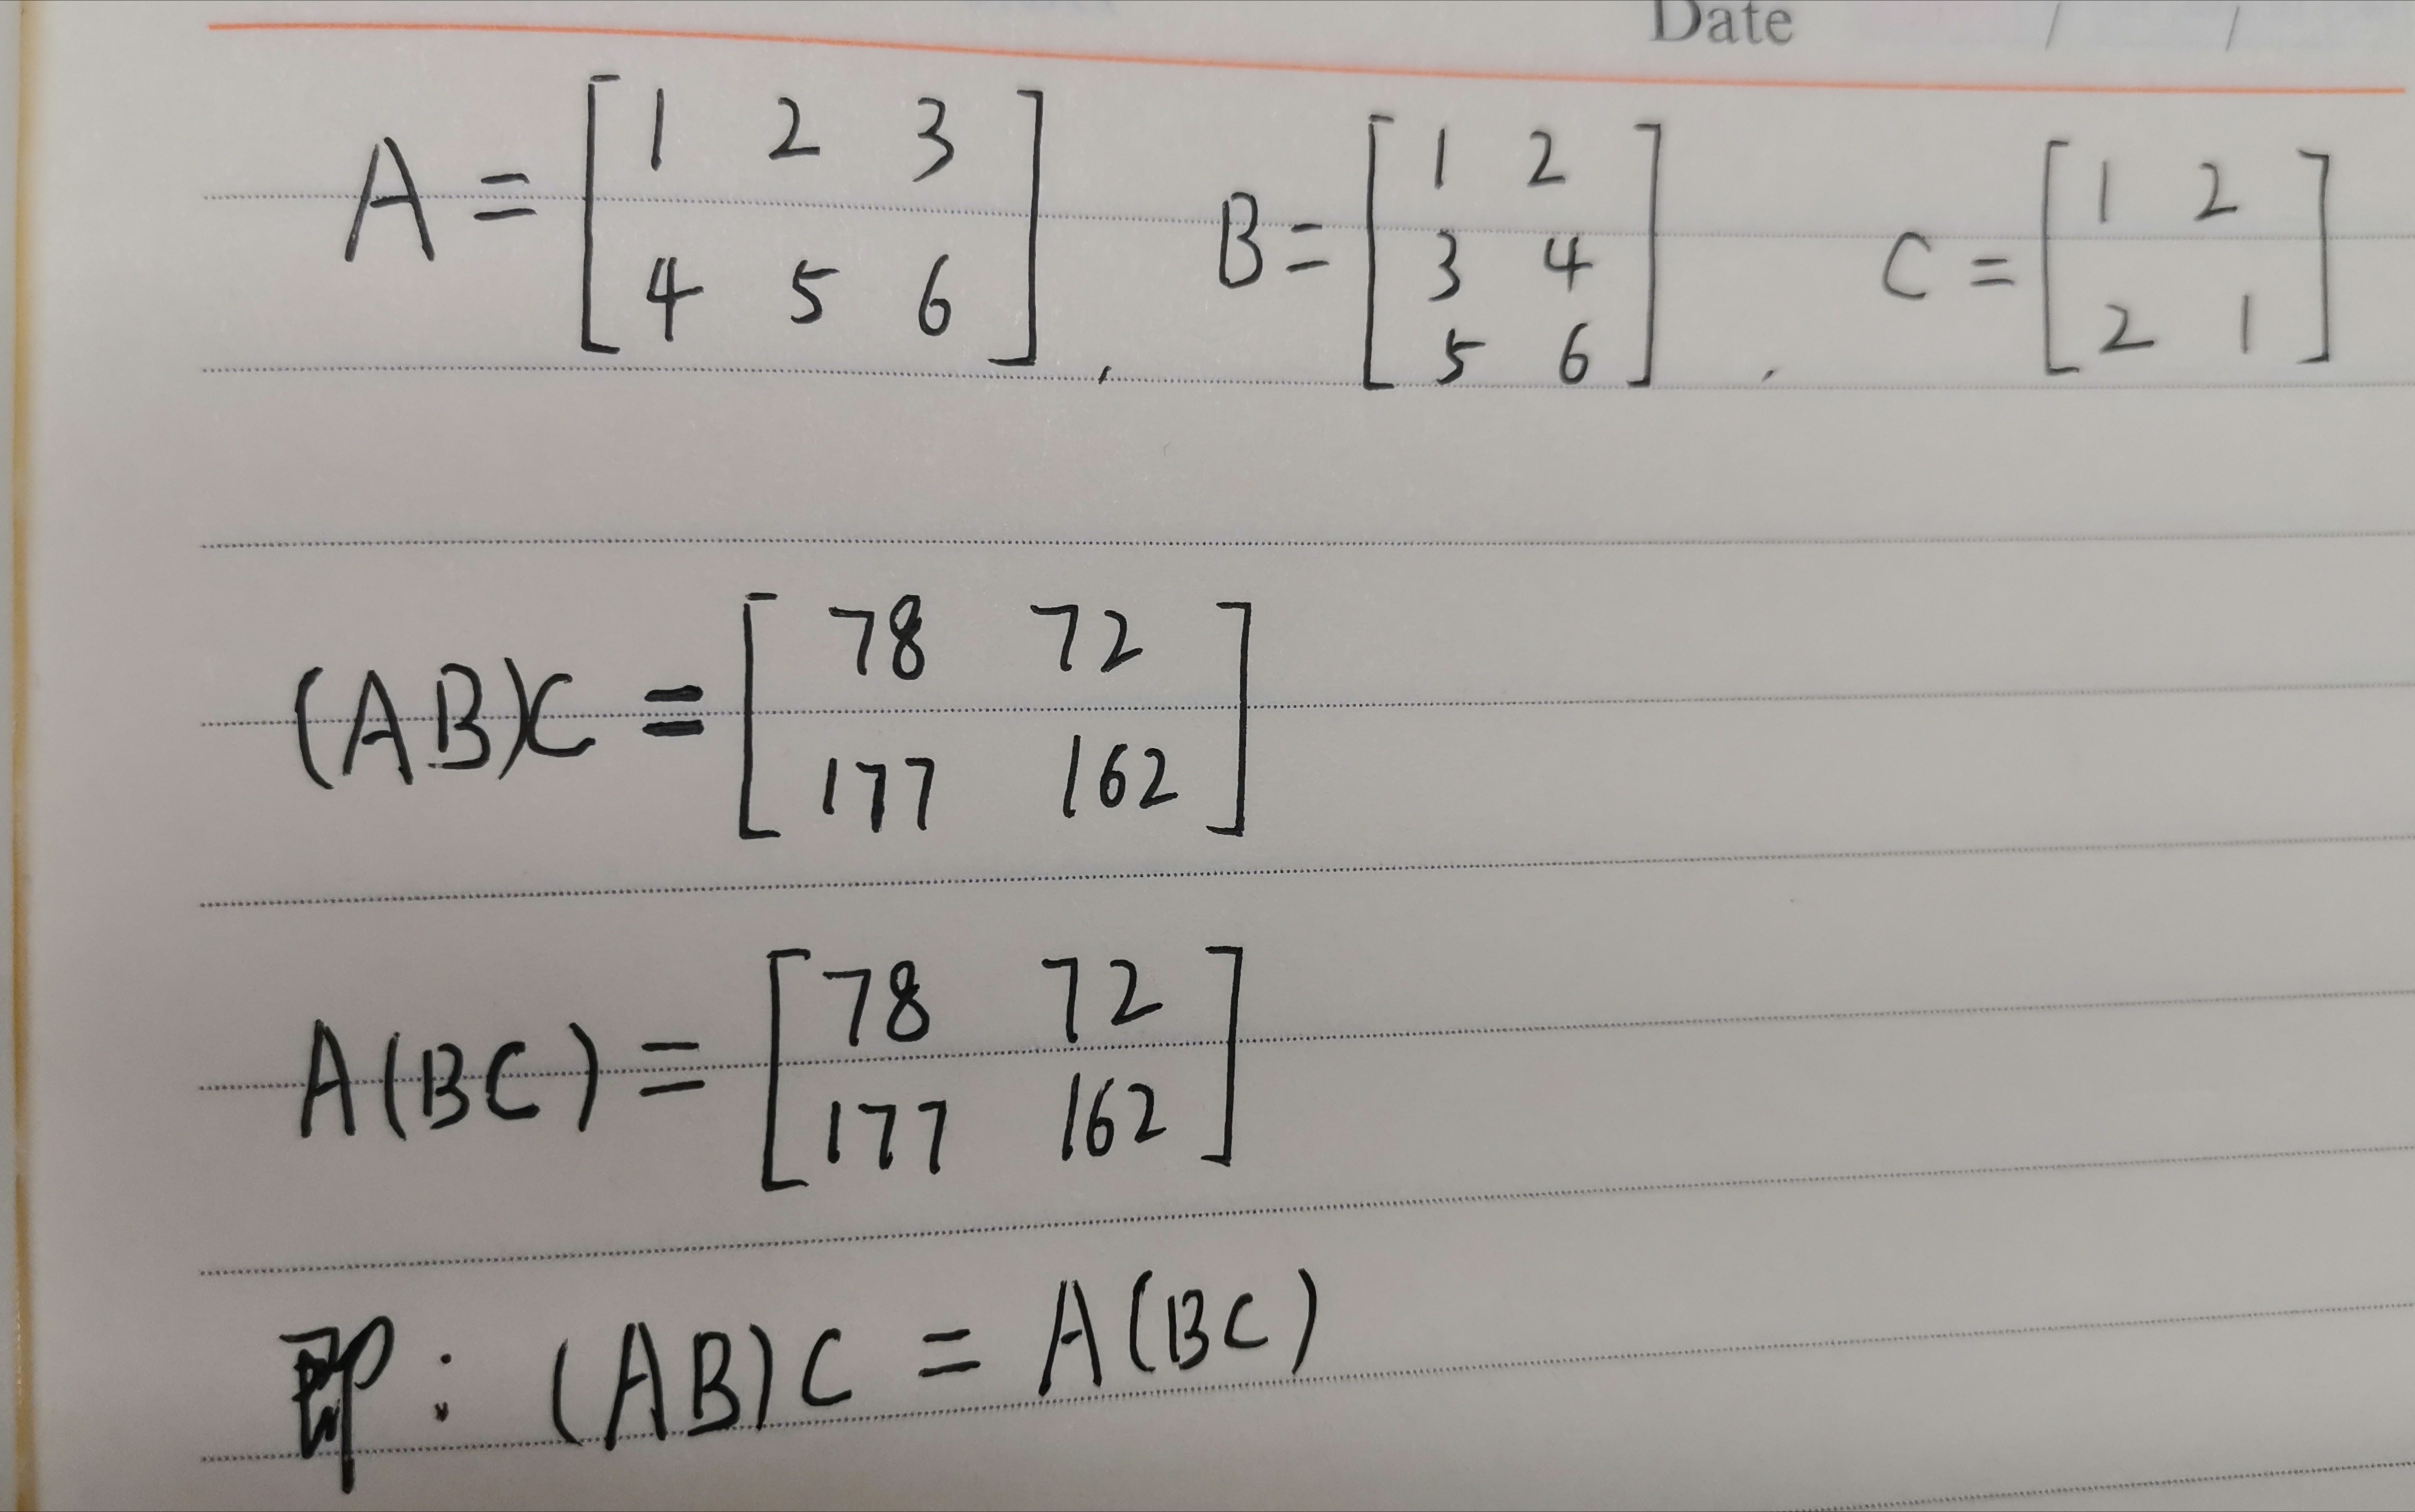 Date / /
A = [1 2 3
4 5 6], B = [1 2
3 4
5 6], C = [1 2
2 1]
(AB)C = [78 72
177 162]
A(BC) = [78 72
177 162]
即: (AB)C = A(BC)